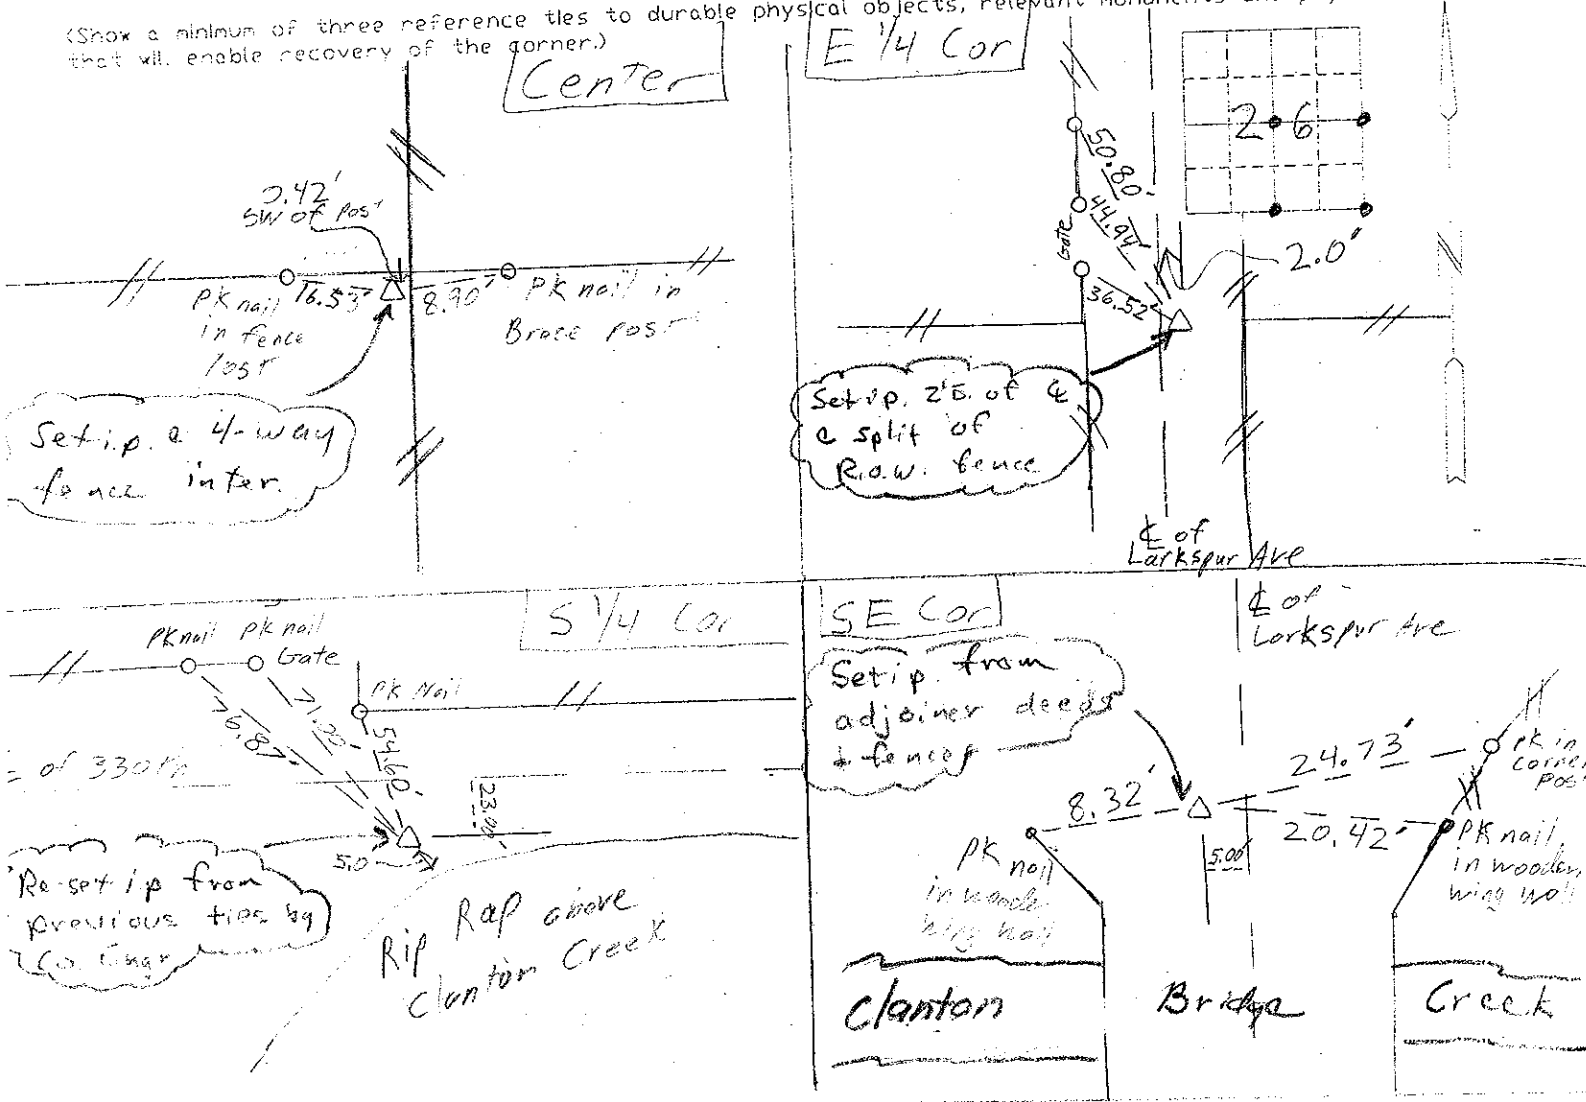 (Show a minimum of three reference ties to durable physical objects, relevant monuments and
that will enable recovery of the corner.)
Center
0.42'
SW of Post
16.53'
8.90'
PK nail
in fence
Post
PK nail in
Brace post
Set i.p. @ 4-way
fence inter.
E 1/4 Cor
50.80'
44.94'
Gate
36.52'
2.0'
26
N
Set i.p. 2' E. of ℄
@ split of
R.O.W. fence
℄ of
Larkspur Ave
S 1/4 Cor
PK nail PK nail
Gate
PK Nail
54.60'
of 330th
23.00'
5.0
Re-set ip from
previous ties by
Co. Engr
Rip Rap above
Clanton Creek
SE Cor
℄ of
Larkspur Ave
Set ip. from
adjoiner deeds
+ fences
24.73'
PK in
corner
post
8.32'
20.42'
5.00'
PK nail
in wooden
wing wall
PK nail
in wooden
wing wall
Clanton Bridge Creek